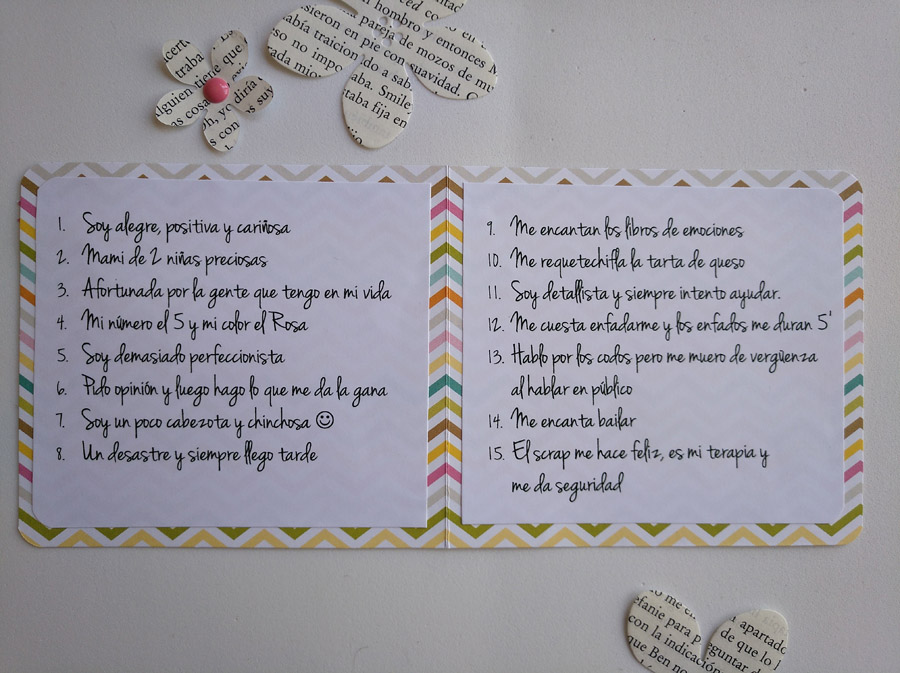 certe
traba
tiene que
lguien
as cosa
oh, yo
diría
s con
s suy
ed co
hombro y entonces
sieron en pie con
pareja de mozos de
abía traicion
do a sab
suavidad.
so no impo
aba. Smile
ada mio
taba fija en
1. Soy alegre, positiva y cariñosa
2. Mami de 2 niñas preciosas
3. Afortunada por la gente que tengo en mi vida
4. Mi número el 5 y mi color el Rosa
5. Soy demasiado perfeccionista
6. Pido opinión y luego hago lo que me da la gana
7. Soy un poco cabezota y chinchosa ☺
8. Un desastre y siempre llego tarde
9. Me encantan los libros de emociones
10. Me requetechifla la tarta de queso
11. Soy detallista y siempre intento ayudar.
12. Me cuesta enfadarme y los enfados me duran 5'
13. Hablo por los codos pero me muero de vergüenza
al hablar en público
14. Me encanta bailar
15. El scrap me hace feliz, es mi terapia y
me da seguridad
o me e
efanie para p
con la indicación
que Ben no
apartado
de que lo l
eguntar d